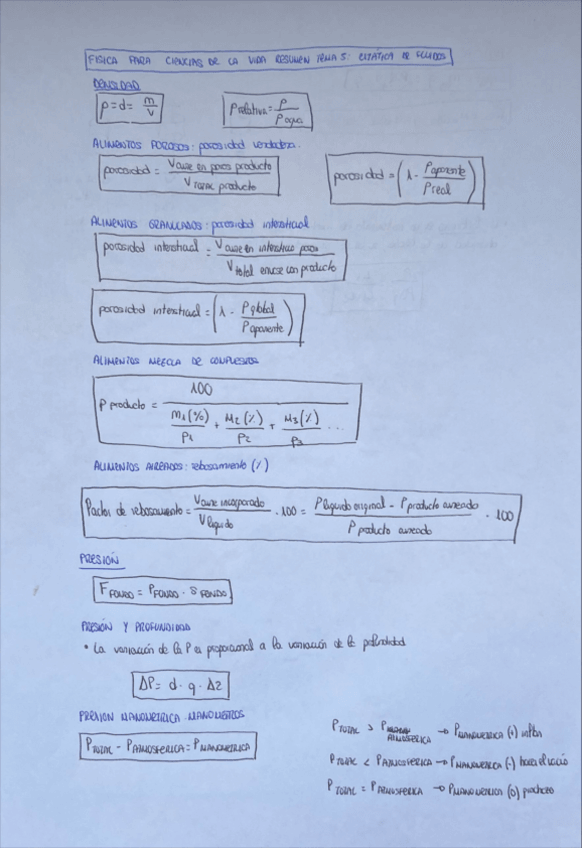 FISICA PARA CIENCIAS DE LA VIDA RESUMEN TEMA 5: ESTÁTICA DE FLUIDOS
DENSIDAD
ρ = d = m/V
ρ relativa = ρ/ρ agua
ALIMENTOS POROSOS: porosidad verdadera.
porosidad = V aire en poros producto / V TOTAL producto
porosidad = (1 - ρ aparente / ρ real)
ALIMENTOS GRANULADOS: porosidad intersticial
porosidad intersticial = V aire en intersticio poros / V total envase con producto
porosidad intersticial = (1 - ρ global / ρ aparente)
ALIMENTOS MEZCLA DE COMPUESTOS
ρ producto = 100 / (m1(%)/ρ1 + M2(%)/ρ2 + M3(%)/ρ3 ...)
ALIMENTOS AIREADOS: rebosamiento (%)
Factor de rebosamiento = V aire incorporado / V líquido · 100 = (ρ líquido original - ρ producto aireado) / ρ producto aireado · 100
PRESIÓN
F FONDO = P FONDO · S FONDO
PRESIÓN Y PROFUNDIDAD
• La variación de la P es proporcional a la variación de la profundidad
ΔP = d · g · Δz
PRESION MANOMETRICA MANOMETROS
P TOTAL - P ATMOSFERICA = P MANOMETRICA
P TOTAL > P ATMOSFERICA → P MANOMETRICA (+)
P TOTAL < P ATMOSFERICA → P MANOMETRICA (-) hace el vacío
P TOTAL = P ATMOSFERICA → P MANOMETRICA (0)